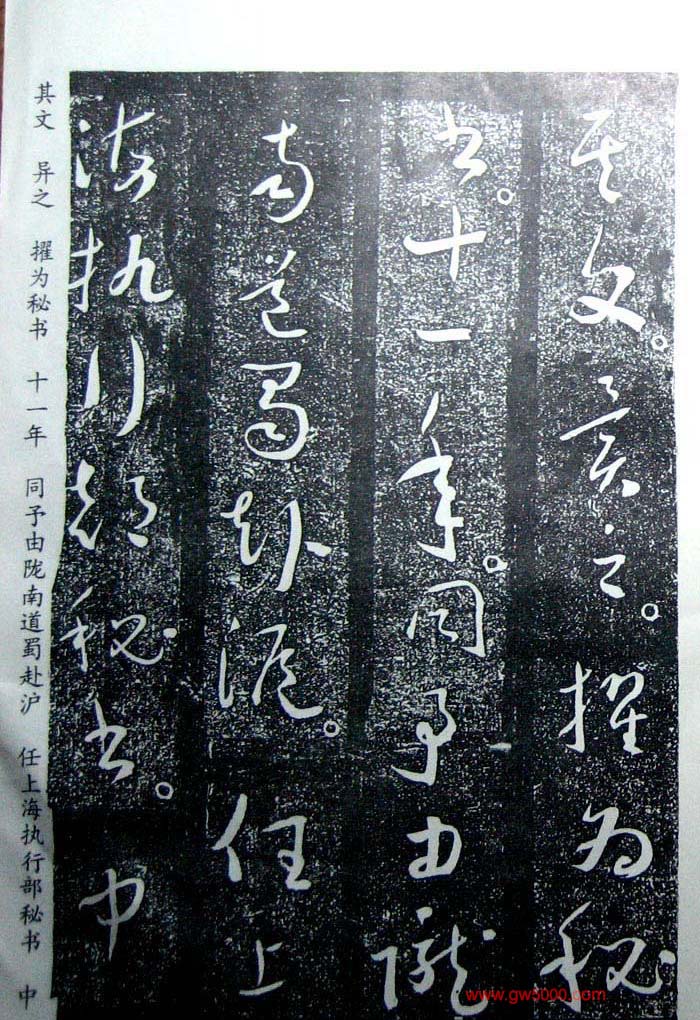 其文。异之。擢为秘
书。十一年。同予由陇
南道蜀赴沪。任上
海执行部秘书。中
其文 异之 擢为秘书 十一年 同予由陇南道蜀赴沪 任上海执行部秘书 中
www.gw5000.com